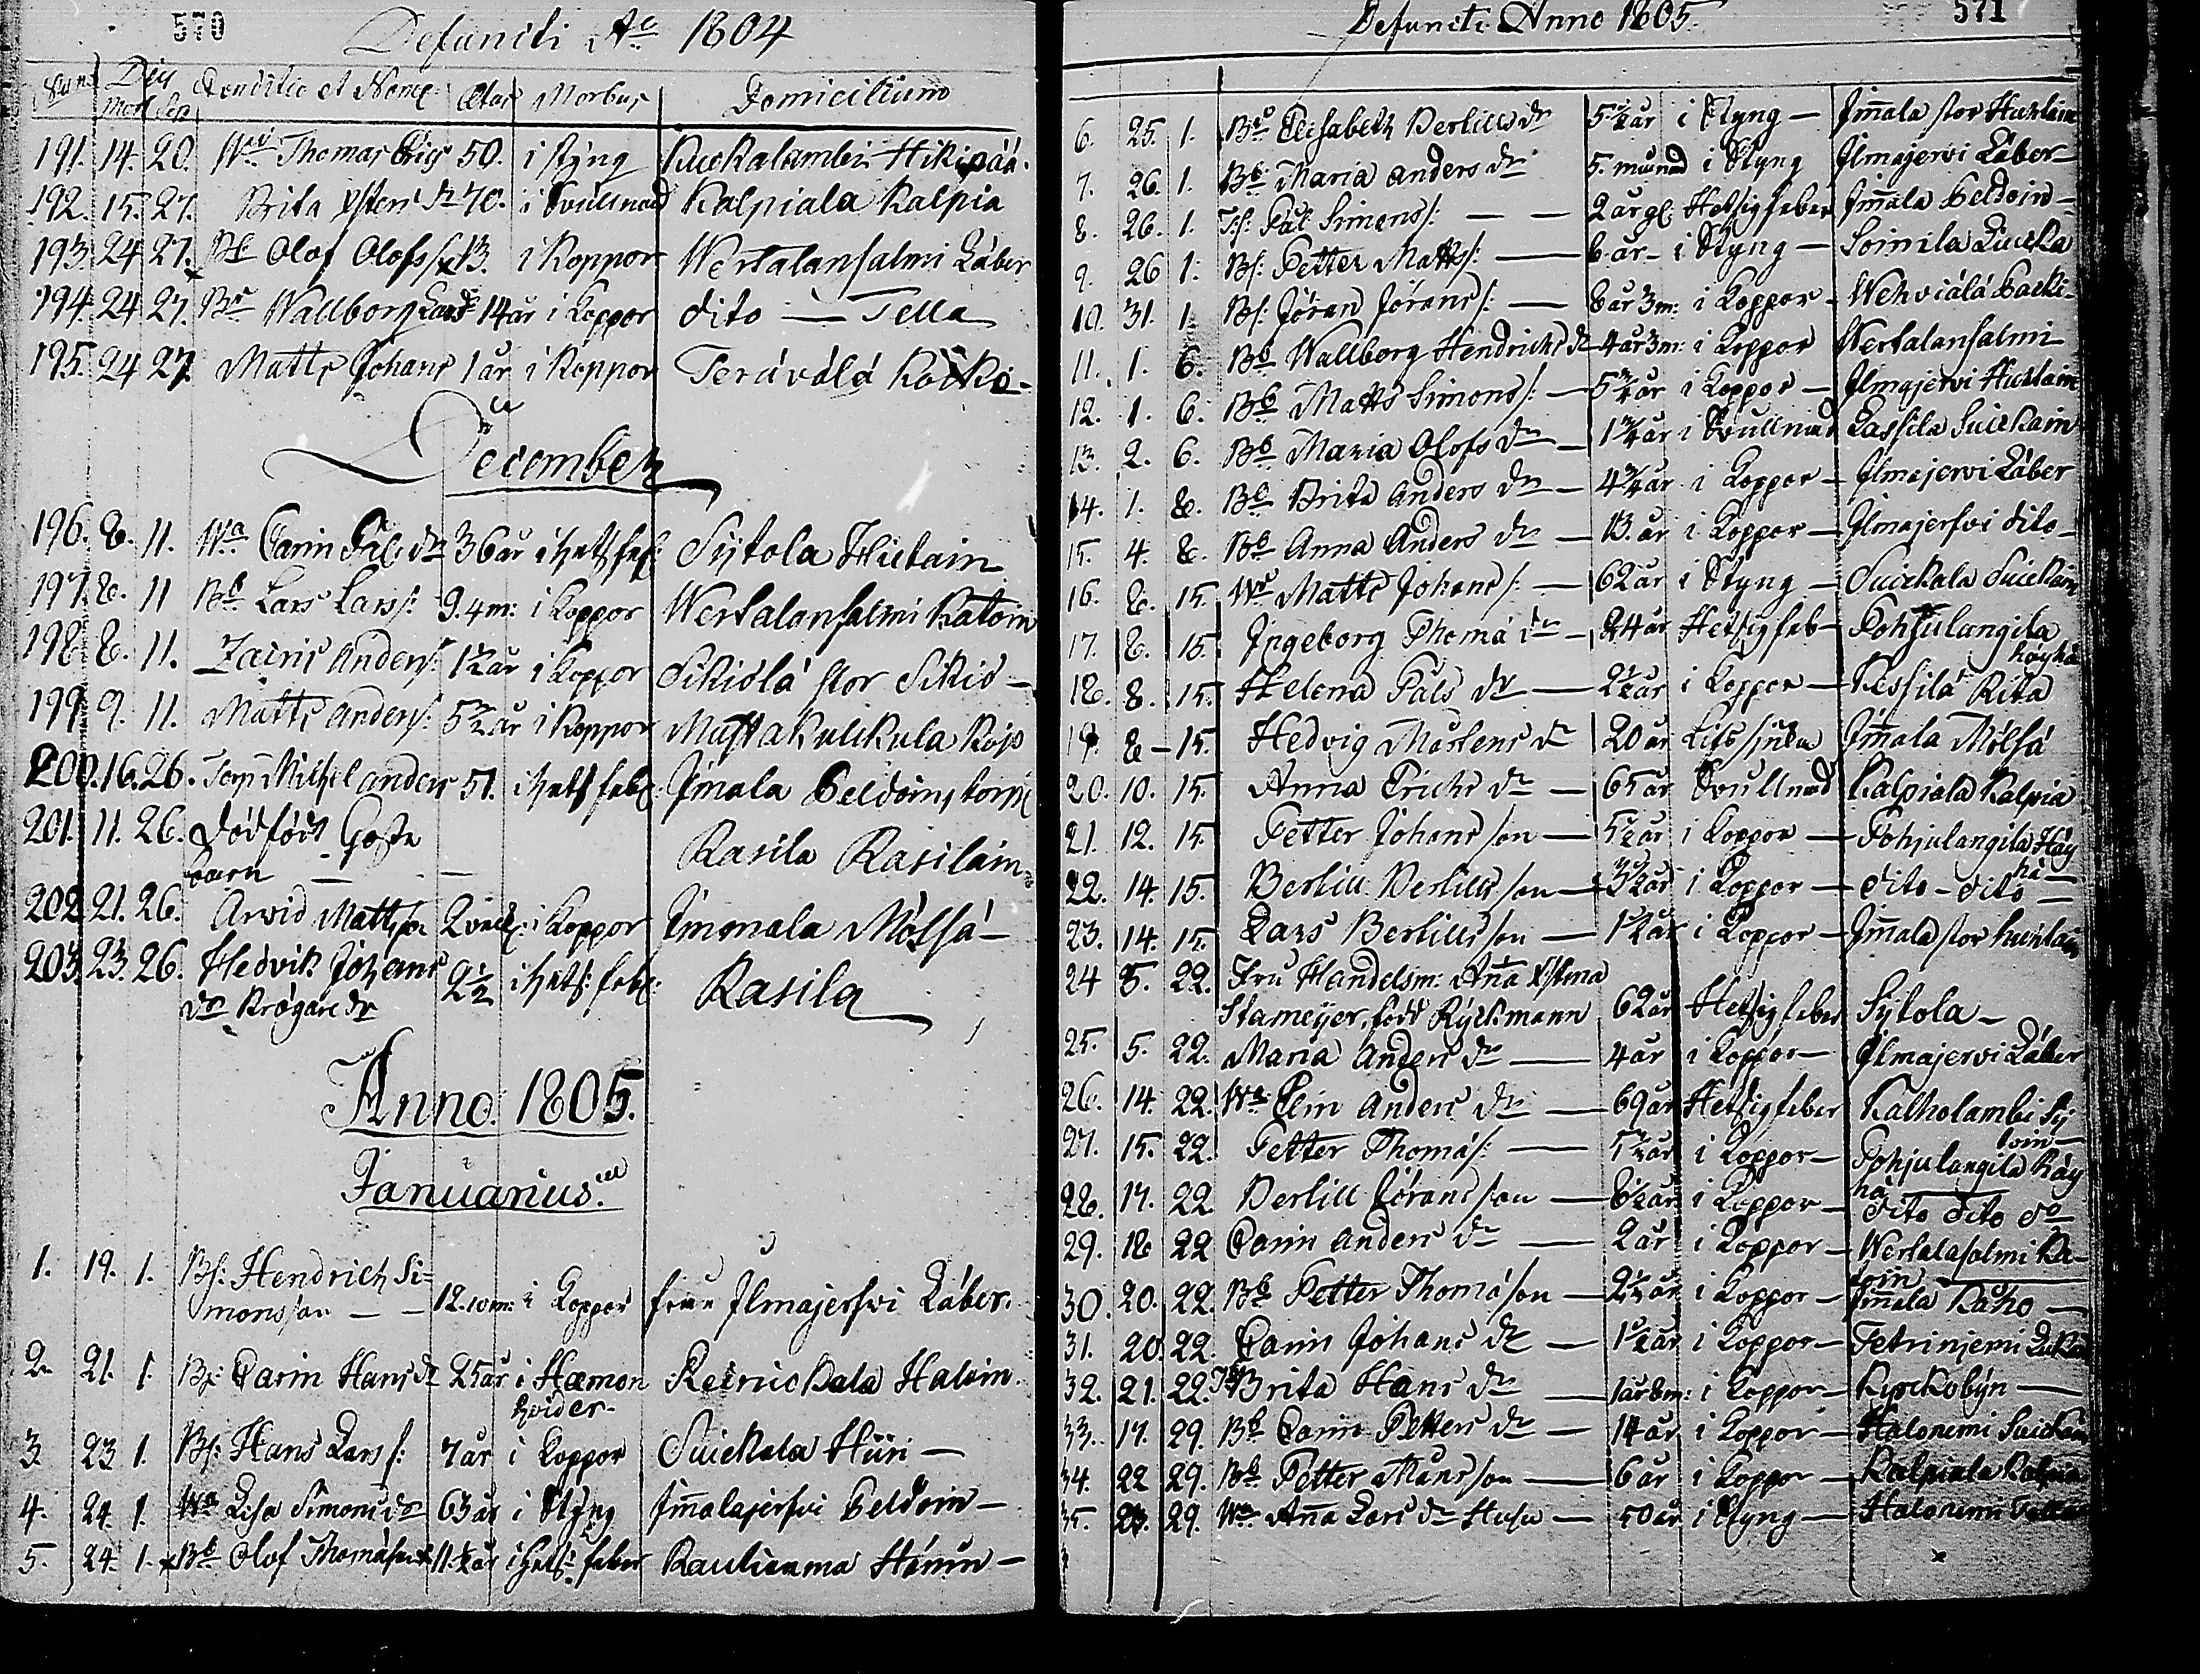 570
Defuncti Ao 1804
Num. Dies Conditio et Nome: Ætas Morbus Domicilium
Mort Sep
191. 14. 20. Wid Thomas Erics 50. i styng Kuckalambi Hikipää.
192. 15. 27. Brita Ystens dr 70. i Svullnad Kalpiala Kalpia
193. 24 27. Bd Olof Olofss 13. i Koppor Wertalansalmi Läber
194. 24 27. Bd Wallborg Lars dr 14 år i Koppor dito — Tella
195. 24 27. Matts Johans 1 år i Koppor Terävälä
December
196. 8. 11. Wa Carin dr 36 år i hets feb: Sijtola Hutain
197. 8. 11 Bd Lars Lars: 9. 4 m: i Koppor Wertalansalmi Katoin
198 8. 11. Zacris Anders: 1 1/2 år i Koppor Sikiölä stor Sikiö —
199. 9. 11. Matts Anders: 5 1/2 år i Koppor
200. 16. 26. Torp Michel Anders 51. i hets feb: Immala Beldoins torp
201. 11. 26. dödfödt Gosse
barn — — Rasila Rasilain
202. 21. 26. Arvid Mattsson 2 veck: i Koppor Immala Mölsä —
203. 23. 26. Hedvik Johans
dr Krögare dr 2 1/2 i hets: feb: Rasila
Anno 1805.
Januarius.
1. 19. 1. Bs: Hendrich Si=
monsson — — 12. 10 m: i Koppor från Ilmajerfvi Läber.
2. 21. 1. Bp: Carin Hans dr 25 år i Hæmon Reinickala Haloin.
hvider
3. 23 1. Bs: Hans Lars s: 7 år i Koppor Suickala Hüri —
4. 24. 1. Wa Lisa Simons dr 63 år i Styng Immalajerfvi Beldoin —
5. 24. 1. Bd Olof Thomasson 11 1/2 år i Hets: feber Rauhianma Hänin —
571
Defuncti Anno 1805.
6. 25. 1. Bd Elisabeth Bertills dr 5 1/2 år i Styng — Immala stor Huxlain
7. 26. 1. Bd Maria Anders dr 5. månad i Styng Ilmajervi Läber —
8. 26. 1. Ts: Pål Simons s: — — 2 år gl: Hetsig feber Immala Beldoin —
9. 26 1. Bs: Petter Matts s: — 6 år — i Styng — Soinila Luicka
10. 31. 1. Bs: Jöran Jörans s: — 8 år 3 m: i Koppor — Wehviälä Backi.
11. 1. 6. Bd Wallborg Hendrichs dr 4 år 3 m: i Koppor Wertalansalmi
12. 1. 6. Bd Matts Simons s: — 5 3/4 år i Koppor — Ilmajervi Huxlain
13. 2. 6. Bd Maria Olofs dr — 1 3/4 år i Svullnad Lassila Suickain
14. 1. 8. Bd Brita Anders dr — 4 3/4 år i Koppor — Ilmajervi Läber
15. 4. 8. Bd Anna Anders dr — 13 år i Koppor — Ilmajerfvi dito —
16. 8. 15. Wd Matts Johans s: — 62 år i Styng — Suickala Suickain
17. 8. 15. Ingeborg Thoma dr — 24 år Hetsig feb — Pohjulangila
häyhä
18. 8. 15. Helena Påls dr — 2 1/2 år i Koppor — Kessilä Rita
19. 8 — 15. Hedvig Mårtens dr 20 år Lifssjuka Immala Mölsä
20. 10. 15. Anna Erichs dr — 65 år Svullnad Kalpiala Kalpia
21. 12. 15. Petter Johans son — 5 1/2 år i Koppor — Pohjulangila Häy
hä —
22. 14. 15. Bertill Bertills son — 3 1/2 år i Koppor — dito — dito —
23. 14. 15. Lars Bertills son — 1 1/2 år i Koppor — Immala stor huxlain
24 8. 22. Fru Handelsm: Anna Ystina
Stameijer, född Ryckmann 62 år Hetsig feber Sijtola —
25. 5. 22. Maria Anders dr — 4 år i Koppor — Ilmajervi Läber
26. 14. 22. Wa Elin Anders dr — 69 år Hetsig feber Kalholambi Sy
toin —
27. 15. 22. Petter Thomas: — 5 1/2 år i Koppor — Pohjulangila Häy
hä —
28. 17. 22. Bertill Jörans son — 8 1/2 år i Koppor — dito dito do
29. 18 22 Carin Anders dr — 2 år i Koppor — Wertalasalmi Ka-
toin —
30. 20. 22. Bd Petter Thomasson — 2 1/2 år i Koppor — Immala Kaho —
31. 20. 22. Carin Johans dr — 1 1/2 år i Koppor — Petrinjemi
32. 21. 22. Brita Hans dr — 1 år 8 m: i Koppor — Kyrckobyn —
33. 17. 29. Bd Carin Petters dr — 14 år i Koppor — Halonemi Suickain
34. 22 29. Bd Petter Måns son — 6 år i Koppor — Kalpiala Kalpia
35. 23. 29. Wa Anna Lars dr — 50 år i Styng — Halonemi